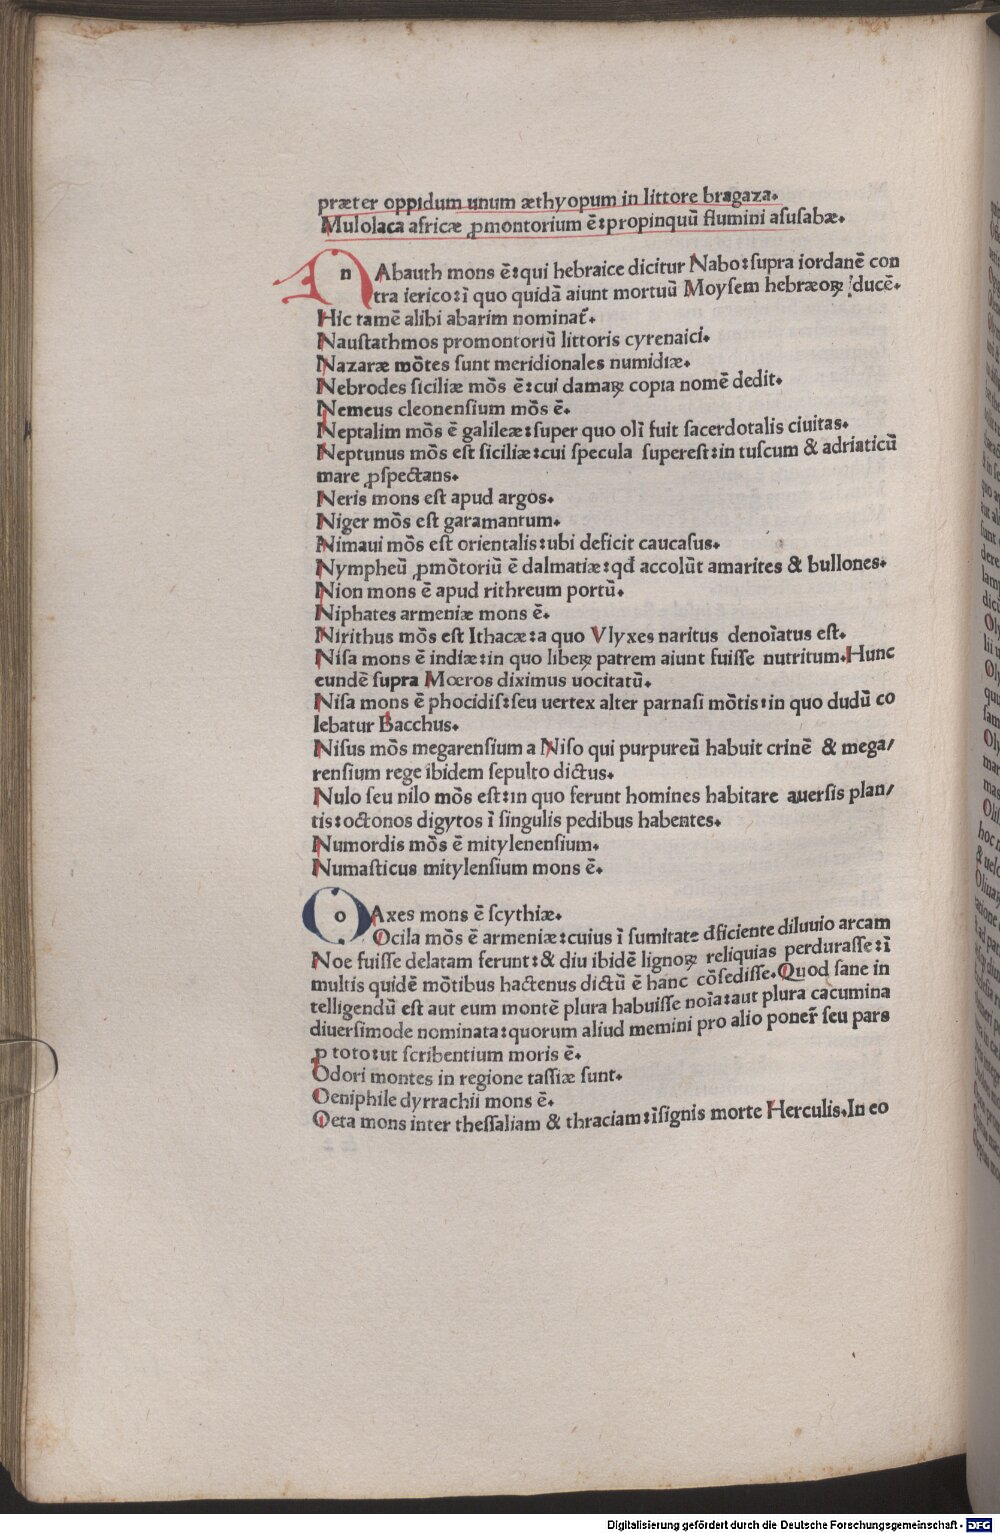 præter oppidum unum æthyopum in littore bragaza.
Mulolaca africæ ꝓmontorium ē:propinquū flumini asusabæ.
n Abauth mons ē:qui hebraice dicitur Nabo:supra iordanē con
tra ierico:ī quo quidā aiunt mortuū Moysem hebræoꝝ ducē.
Hic tamē alibi abarim nominat̄.
Naustathmos promontoriū littoris cyrenaici.
Nazaræ mōtes sunt meridionales numidiæ.
Nebrodes siciliæ mōs ē:cui damaꝝ copia nomē dedit.
Nemeus cleonensium mōs ē.
Neptalim mōs ē galileæ:super quo olī fuit sacerdotalis ciuitas.
Neptunus mōs est siciliæ:cui specula superest:in tuscum & adriaticū
mare ꝓspectans.
Neris mons est apud argos.
Niger mōs est garamantum.
Nimaui mōs est orientalis:ubi deficit caucasus.
Nympheū ꝓmōtoriū ē dalmatiæ:qđ accolūt amarites & bullones.
Nion mons ē apud rithreum portū.
Niphates armeniæ mons ē.
Nirithus mōs est Ithacæ:a quo Vlyxes naritus denoīatus est.
Nisa mons ē indiæ:in quo libeꝝ patrem aiunt fuisse nutritum.Hunc
eundē supra Mœros diximus uocitatū.
Nisa mons ē phocidis:seu uertex alter parnasi mōtis:in quo dudū co
lebatur Bacchus.
Nisus mōs megarensium a Niso qui purpureū habuit crinē & mega/
rensium rege ibidem sepulto dictus.
Nulo seu nilo mōs est:in quo ferunt homines habitare auersis plan/
tis:octonos digytos ī singulis pedibus habentes.
Numordis mōs ē mitylenensium.
Numasticus mitylensium mons ē.
o Axes mons ē scythiæ.
Ocila mōs ē armeniæ:cuius ī sumitate đficiente diluuio arcam
Noe fuisse delatam ferunt:& diu ibidē lignoꝝ reliquias perdurasse:ī
multis quidē mōtibus hactenus dictū ē hanc cōsedisse.Quod sane in
telligendū est aut eum montē plura habuisse noīa:aut plura cacumina
diuersimode nominata:quorum aliud memini pro alio poner̄ seu pars
ꝓ toto:ut scribentium moris ē.
Odori montes in regione tassiæ sunt.
Oeniphile dyrrachii mons ē.
Oeta mons inter thessaliam & thraciam:īsignis morte Herculis.In eo
Digitalisierung gefördert durch die Deutsche Forschungsgemeinschaft - DFG